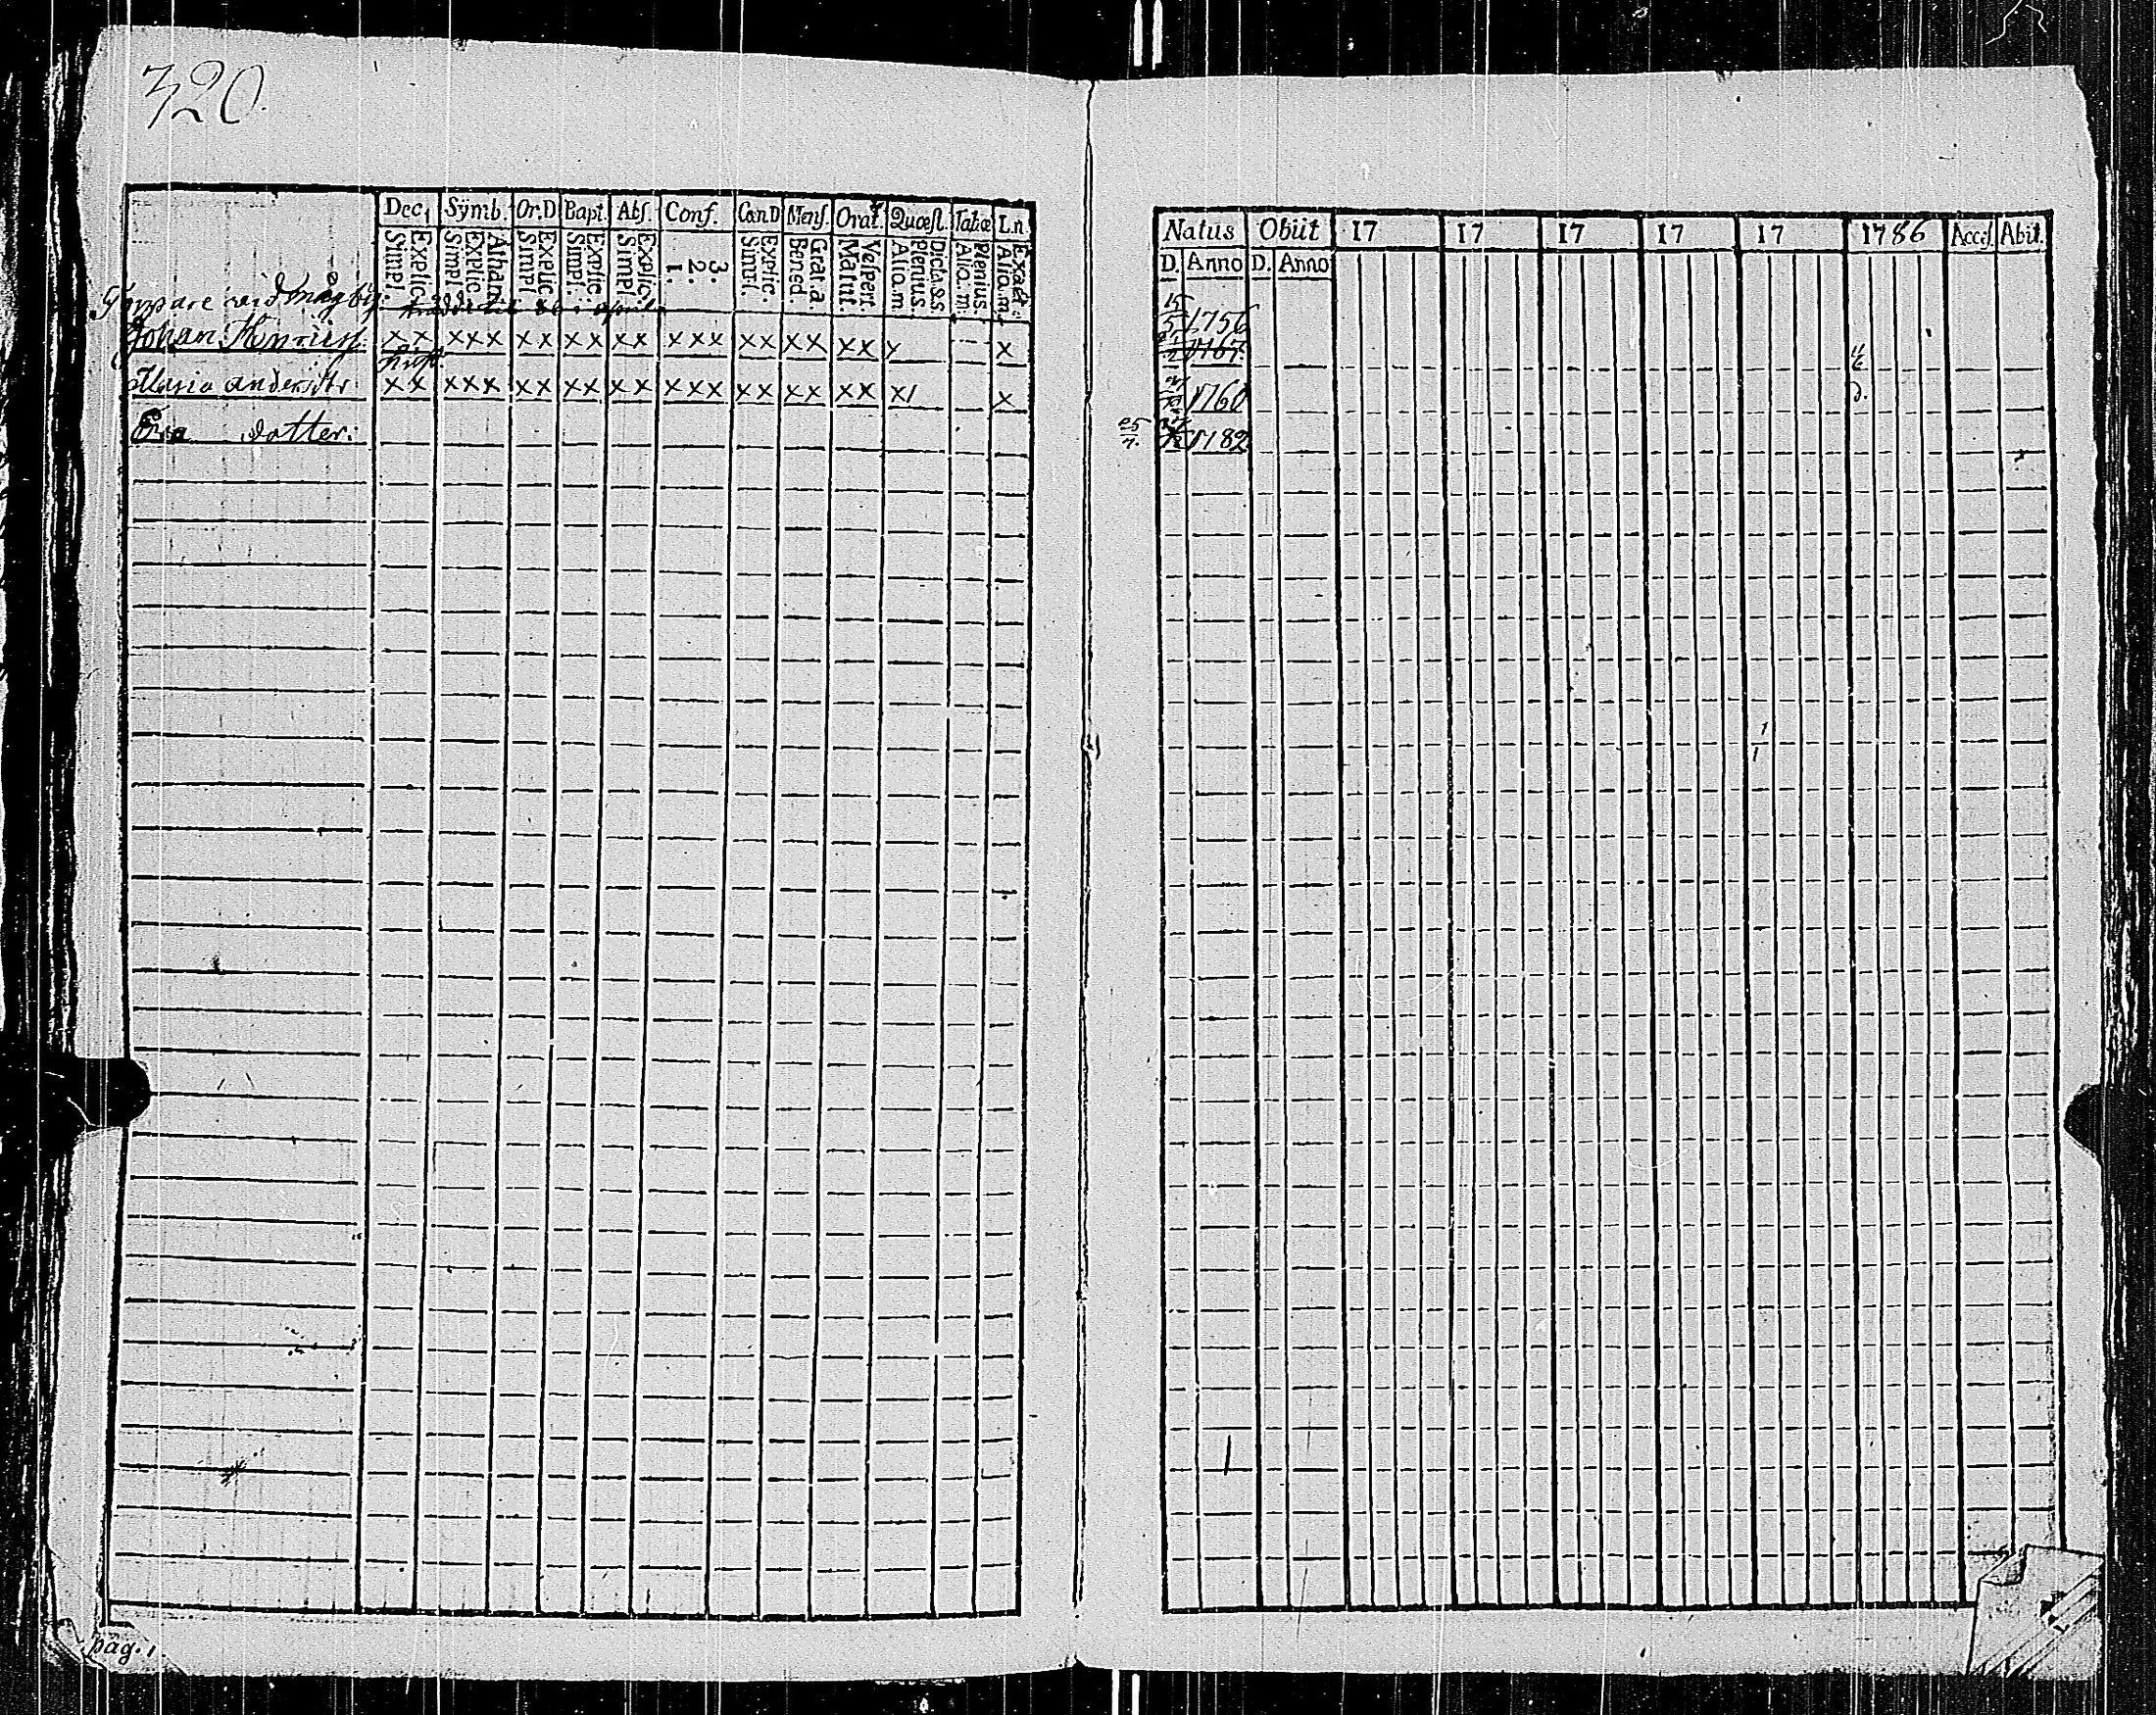 320.
Dec. Symb. Or.D Bapt. Abs. Conf. Cœn.D Mens. Orat. Quæst. Tabæ L.n.
Simpl. Explic. Simpl. Explic. Athan. Simpl. Explic. Simpl. Explic. Simpl. Explic. 1. 2. 3. Simpl. Explic. Bened. Grat. a. Matut. Vespert. Aliq. m. Plenius. Dicta s.s. Aliq. m. Plenius. Aliq. m. Exact.
vid Mågby
Johan Henricss. x x x x x x x x x x x x x x x x x x x x x x
Hust.
Maria Andersdtr x x x x x x x x x x x x x x x x x x x x x
Eva dotter:
pag. 1
Natus Obiit 17 17 17 17 17 1786 Acces. Abit.
D. Anno D. Anno
15/5 1756
1767
1760
25/4. 1782